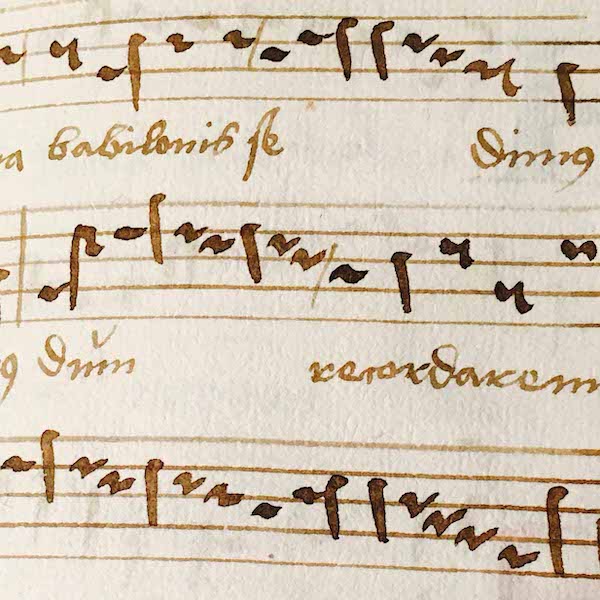 na babilonis se dimus
us dum recordarem